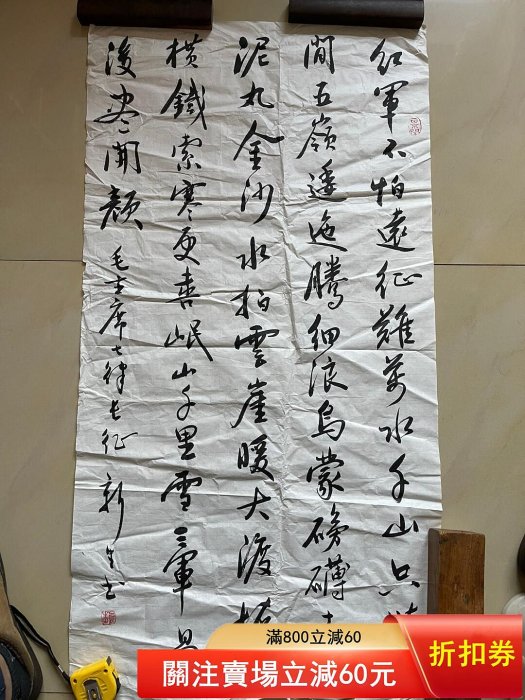 红軍不怕遠征難萬水千山只
閒五嶺逶迤騰細浪烏蒙磅礴
泥丸金沙水拍雲崖暖大渡橋
橫鐵索寒更喜岷山千里雪三軍過
後尽開顏
毛主席七律长征 新生书
滿800立減60
關注賣場立減60元
折扣券